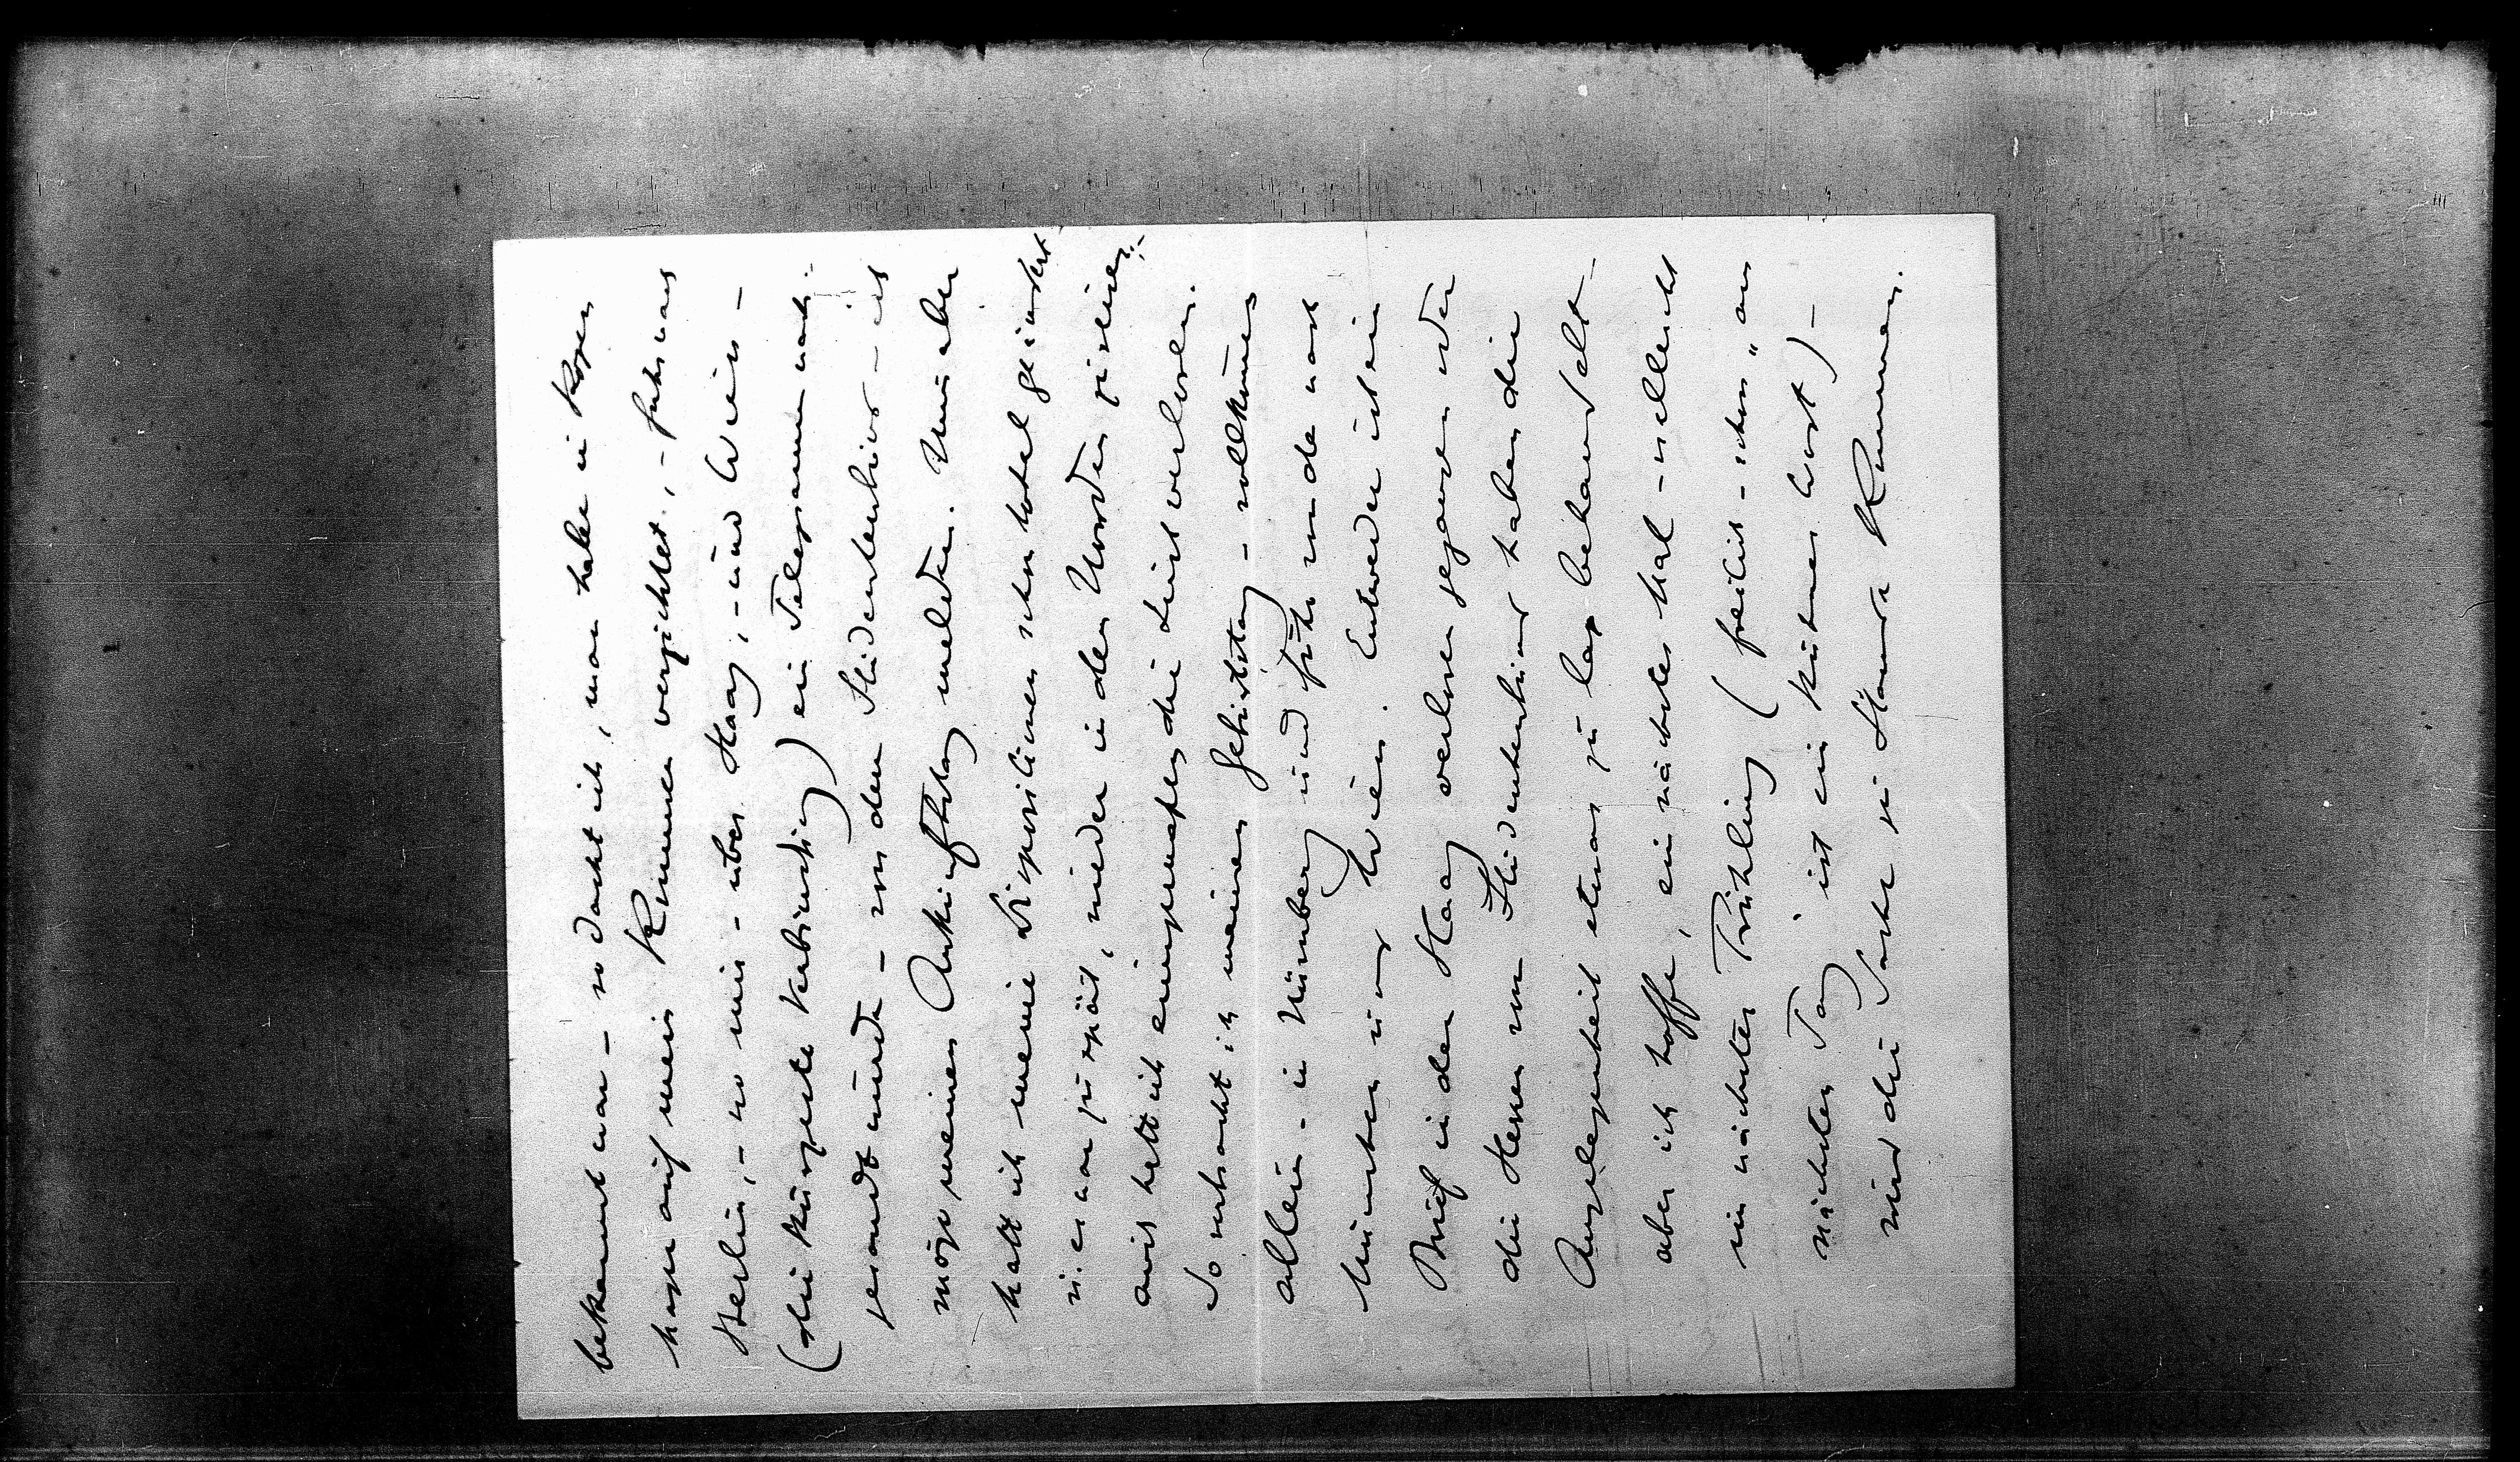 bekannt war – so dacht ich, man habe in Kopen
hagen auf mein Kommen verzichtet, – fuhr nach
Berlin, – wo mir – über Haag, – und Wien –
(die kürzeste Verbindung) ein Telegramm nach-
gesandt wurde – von den Studenterhius – ich
möge meinen Ankunftstag melden. Nun aber
hatt ich meine Dispositionen schon total geändert
u. es war zu spät, wieder in den Norden zu reisen;
auch hatt ich einigermaßen die Lust verloren.
So verbracht ich meinen Geburtstag – vollkommen
allein – in Nürnberg und fuhr wieder nach
München und Wien. Entweder ist ein
Brief in den Haag verloren gegangen oder
die Herren vom Studenterhius haben die
Angelegenheit etwas zu lax behandelt –
aber ich hoffe, ein nächstes Mal – vielleicht
im nächsten Frühling (freilich – schon „am
nächsten Tag" ist ein kühnes Wort) –
wird die Sache zu Stande kommen.